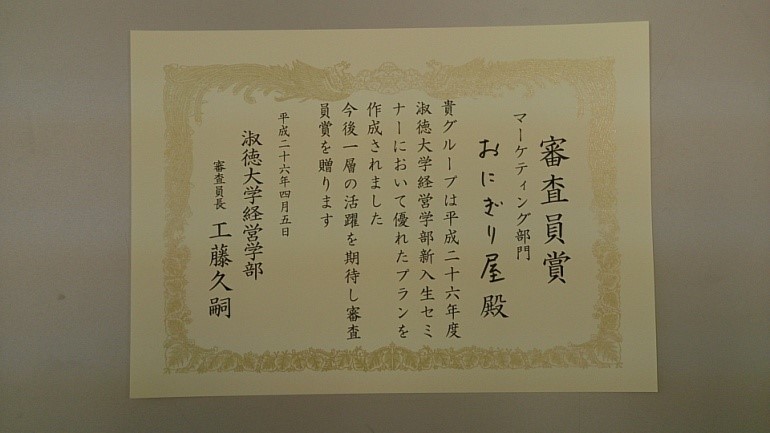 審査員賞
マーケティング部門
おにぎり屋 殿
貴グループは平成二十六年度
淑徳大学経営学部新入生セミ
ナーにおいて優れたプランを
作成されました
今後一層の活躍を期待し審査
員賞を贈ります
平成二十六年四月五日
淑徳大学経営学部
審査員長 工藤久嗣